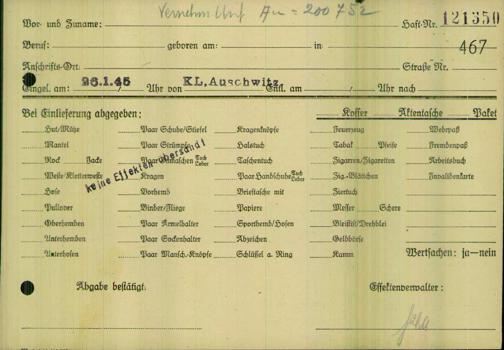 Vor- und Zuname: Haft-Nr. 121350
Beruf: geboren am: in 467-
Anschrifts-Ort: Straße Nr.
Eingel. am: 26.1.45 Uhr von KL. Auschwitz Entl. am: Uhr nach
Bei Einlieferung abgegeben: Koffer Aktentasche Paket
Hut/Mütze Paar Schuhe/Stiefel Kragenknöpfe Feuerzeug Wehrpaß
Mantel Paar Strümpfe Halstuch Tabak Pfeife Fremdenpaß
Rock Jacke Paar Gamaschen Tuch Leder Taschentuch Zigarren/Zigaretten Arbeitsbuch
Weste/Kletterweste Kragen Paar Handschuhe Tuch Leder Zig.-Blättchen Invalidenkarte
keine Effekten übersandt
Hose Vorhemd Brieftasche mit Ziertuch
Pullover Binder/Fliege Papiere Messer Schere
Oberhemden Paar Ärmelhalter Sporthemd/Hosen Bleistift/Drehblei
Unterhemden Paar Sockenhalter Abzeichen Geldbörse
Unterhosen Paar Mansch.-Knöpfe Schlüssel a. Ring Kamm Wertsachen: ja—nein
Abgabe bestätigt: Effektenverwalter: